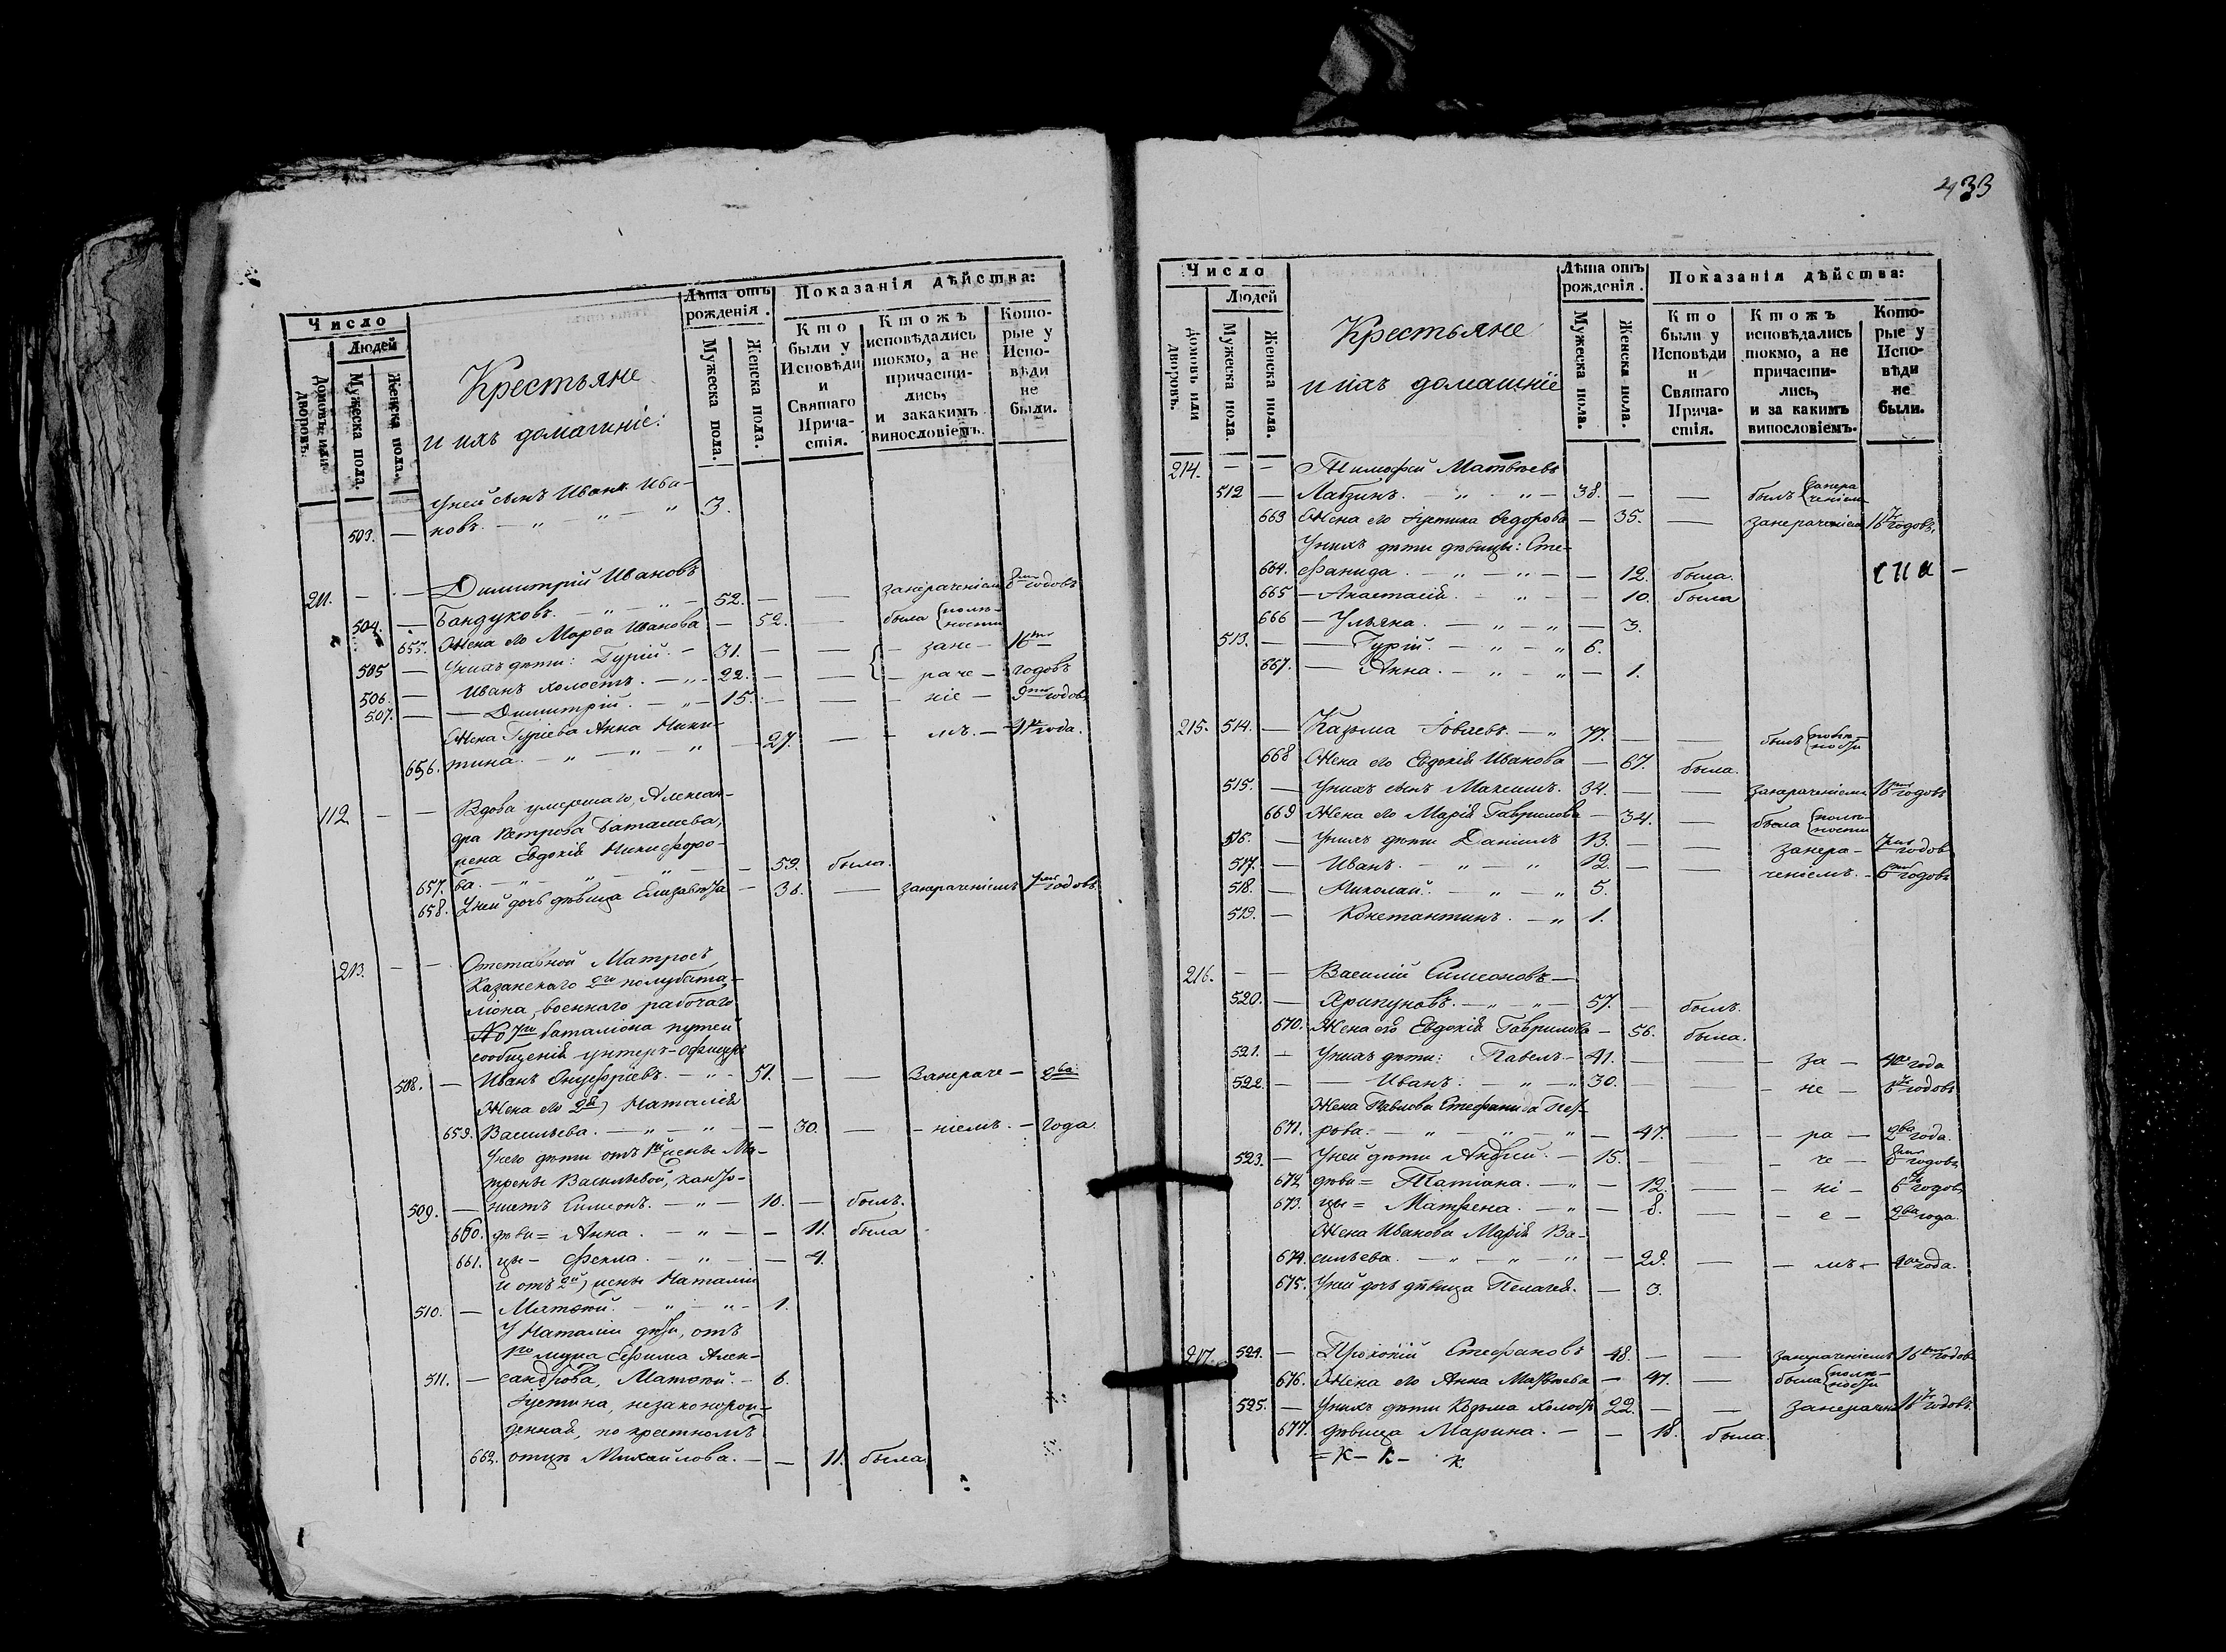 433
Число
Людей
Домовъ или дворовъ.
Мужеска пола.
Женска пола.
Крестьяне
и ихъ домашніе:
Лѣта отъ рожденія.
Мужеска пола.
Женска пола.
Показанія дѣйства:
Кто были у Исповѣди и Святаго Причастія.
Ктожъ исповѣдались токмо, а не причастились, и закакимъ винословіемъ.
Которые у Исповѣди не были.
У ней сынъ Иванъ Ива-
503. — новъ. — „ — „ — „ 3.
211. — — Димитрій Ивановъ
504. — Бандуковъ. — „ — „ — 52. — — занераченіем 8 годовъ
655. Жена его Марѳа Иванова — 52. — была {полн-ности
505 — У нихъ дѣти: Гурій. — 31. — — { — зане — 16 —
506. — Иванъ холостъ. — „ — 22. — — — раче — годовъ
507. — — Димитрій. — „ — 15. — — — ніе — 9 годовъ
Жена Гуріева Анна Ники-
656. тина. — „ — „ — „ — 27. — — мъ. — 4 года.
112 — — Вдова умершаго, Алексан-
дра Петрова Баташева,
жена Евдокія Никифоро-
657. ва. — „ — „ — „ — — 59. была.
658. У ней дочь дѣвица Елизавета — 38. — занераченіемъ 7 годовъ
213. — — Отставной Матросъ
Казанскаго 2го полубата-
ліона, военнаго рабочаго
№ 7го баталіона путей
сообщенія унтеръ-офицеръ
508. — Иванъ Онуфріевъ. — „ — 51. — — Занераче — 2ва
Жена его 2я, Наталія
659. Васильева. — „ — „ — — 30. — — ніемъ. — года.
У него дѣти отъ 1й жены Ма-
трены Васильевой, канто-
509. — нистъ Симеонъ. — „ — 10. — былъ.
660. дѣви = Анна. — „ — — 11. была
661. цы — Фекла. — „ — — 4.
и отъ 2й, жены Наталіи
510. — Матѳей. — „ — „ — 1.
У Наталіи дѣти, отъ
1го мужа Ефима Алек-
511. — сандрова, Матѳей. — 6.
Іустина, незаконорож-
денная, по крестномъ
662. отцѣ Михайлова. — — 11. была
Число
Людей
Домовъ или дворовъ.
Мужеска пола.
Женска пола.
Крестьяне
и ихъ домашніе
Лѣта отъ рожденія.
Мужеска пола.
Женска пола.
Показанія дѣйства:
Кто были у Исповѣди и Святаго Причастія.
Ктожъ исповѣдались токмо, а не причастились, и за какимъ винословіемъ.
Которые у Исповѣди не были.
214. — — Тимофей Матвѣевъ
512 — Лабзинъ. — „ — „ — 38. — — былъ {занера-ченіем
663 Жена его Іустина Ѳедорова — 35. — занераченіем 16 годовъ,
У нихъ дѣти дѣвицы: Сте-
664. фанида. — „ — „ — — 12. была.
665 — Анастасія. — „ — — 10. была
666 — Ульяна. — „ — „ — 3.
513. — — Гурій. — „ — „ 6.
667. — Анна. — „ — „ — 1.
215. 514. — Казьма Іовлевъ. — „ 77. — — былъ
668 Жена его Евдокія Иванова — 67. была.
515. — У нихъ сынъ Максимъ. 34. — — занераченіемъ 16 годовъ
669 Жена его Марія Гаврилова — 34. — была {полн-ности
516. — У нихъ дѣти Даніилъ 13. — — занера- 7 годов
517. — Иванъ. — „ — „ 12. — — ченіемъ. — 6 годовъ
518. — Николай. — „ — „ 5.
519. — Константинъ. — „ 1.
216. — — Василій Симеоновъ —
520. — Хрипуновъ. — „ — „ — 57. — былъ.
670. Жена его Евдокія Гаврилова — 56. была.
521. — У нихъ дѣти: Павелъ. — 41. — — — за — 4 года
522. — — Иванъ: — „ — „ 30. — — — не — 6 годовъ
Жена Павлова Стефанида Пет-
671. рова. — „ — „ — „ — 47. — — ра — 2ва года.
523. — У ней дѣти Андрей. — 15. — — — че — 8 годовъ
672. дѣви = Татіана. — „ — — 12. — — ні — 6 годовъ
673. цы = Матрена. — „ — — 8. — — е — 2ва года
Жена Иванова Марія Ва-
674. сильева. — „ — „ — „ — 28. — — мъ — 4 года.
675. У ней дочь дѣвица Пелагея. — 3.
217. 524. — Прокопій Стефановъ 48. — — занераченіемъ 16 годовъ
676. Жена его Анна Матвѣева — 47. — была {полн-ности
525. — У нихъ дѣти Козьма холостъ 22. — — занерачен 18 годовъ.
677. дѣвица Марина. — — 18. была.
= К — К — К